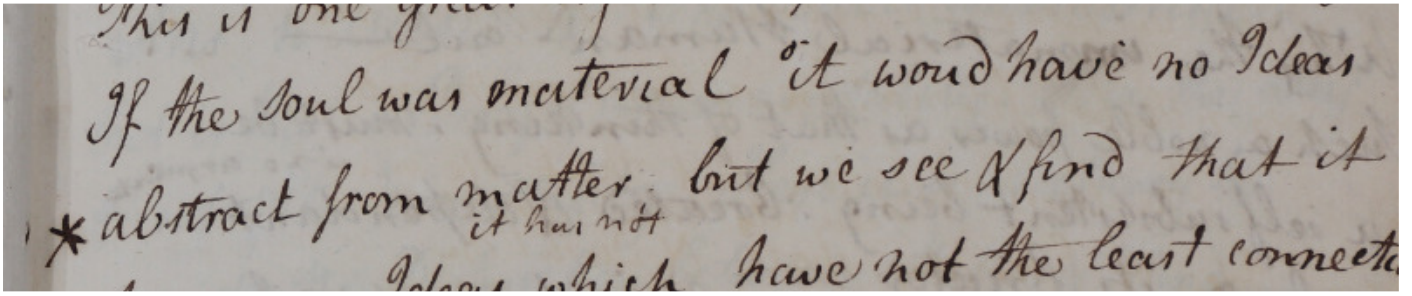 This is one
If the soul was material it woud have no Ideas
* abstract from matter. but we see & find that it
it has not
Ideas which have not the least connecti